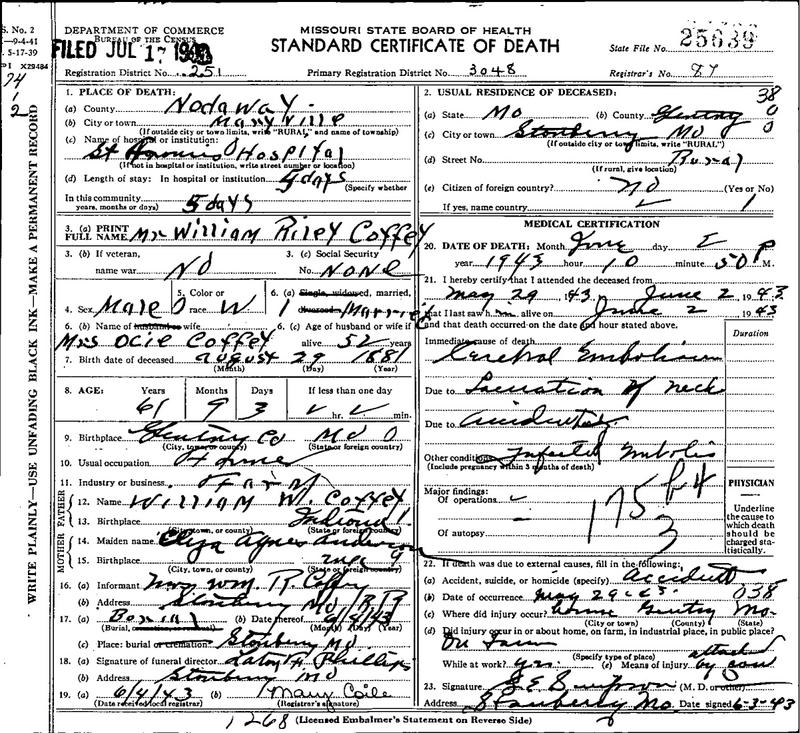 S. No. 2
—9-4-41
5-17-39
X29484
DEPARTMENT OF COMMERCE
BUREAU OF THE CENSUS
FILED JUL 17
MISSOURI STATE BOARD OF HEALTH
STANDARD CERTIFICATE OF DEATH
State File No. 25639
Registration District No. 251
Primary Registration District No. 3048
Registrar's No. 87
WRITE PLAINLY—USE UNFADING BLACK INK—MAKE A PERMANENT RECORD
1. PLACE OF DEATH:
(a) County Nodaway
(b) City or town Maryville
(If outside city or town limits, write "RURAL," and name of township)
(c) Name of hospital or institution:
St Francis Hospital
(If not in hospital or institution, write street number or location)
(d) Length of stay: In hospital or institution 5 days
(Specify whether
In this community 5 days
years, months or days)
3. (a) PRINT FULL NAME Mr William Riley Coffey
3. (b) If veteran, name war No
3. (c) Social Security No. None
4. Sex Male
5. Color or race W
6. (a) Single, widowed, married, divorced Married
6. (b) Name of husband or wife Mrs Ocie Coffey
6. (c) Age of husband or wife if alive 52 years
7. Birth date of deceased August 29 1881
(Month) (Day) (Year)
8. AGE: Years 61 Months 9 Days 3 If less than one day hr. min.
9. Birthplace Gentry Co Mo
(City, town, or county) (State or foreign country)
10. Usual occupation Farmer
11. Industry or business Farm
FATHER
12. Name William W. Coffey
13. Birthplace Indiana
(City, town, or county) (State or foreign country)
MOTHER
14. Maiden name Eliza Agnes Anderson
15. Birthplace
(City, town, or county) (State or foreign country)
16. (a) Informant Mrs Wm. R Coffey
(b) Address Stanberry Mo
17. (a) Burial (b) Date thereof 6/4/43
(Burial, cremation) (Month) (Day) (Year)
(c) Place: burial or cremation Stanberry Mo
18. (a) Signature of funeral director Phillips
(b) Address Stanberry Mo
19. (a) 6/4/43 (b) Mary Caile
(Date received local registrar) (Registrar's signature)
2. USUAL RESIDENCE OF DECEASED:
38
(a) State Mo (b) County Gentry 0
(c) City or town Stanberry Mo 0
(If outside city or town limits, write "RURAL")
(d) Street No. Rural
(If rural, give location)
(e) Citizen of foreign country? No (Yes or No)
If yes, name country 1
MEDICAL CERTIFICATION
20. DATE OF DEATH: Month June day 2
year 1943 hour 10 minute 50 P M.
21. I hereby certify that I attended the deceased from
May 29 1943, June 2 1943
that I last saw him alive on June 2 1943
and that death occurred on the date and hour stated above.
Duration
Immediate cause of death
Cerebral Embolism
Due to Laceration of neck
Due to accidental
Other conditions Infected Embolis
(Include pregnancy within 3 months of death)
Major findings:
Of operations
Of autopsy
175
3
PHYSICIAN
Underline the cause to which death should be charged statistically.
22. If death was due to external causes, fill in the following:
(a) Accident, suicide, or homicide (specify) Accident
(b) Date of occurrence May 29 038
(c) Where did injury occur? home Gentry Mo.
(City or town) (County) (State)
(d) Did injury occur in or about home, on farm, in industrial place, in public place?
On Farm
(Specify type of place)
While at work? yes (e) Means of injury attacked by cow
23. Signature Simpson (M. D. or other)
Address Stanberry Mo. Date signed 6-3-43
1268 (Licensed Embalmer's Statement on Reverse Side)